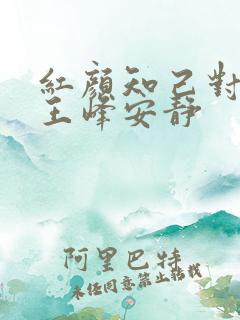 紅顏知己對
王峰安靜
阿里巴特
未经同意禁止转载